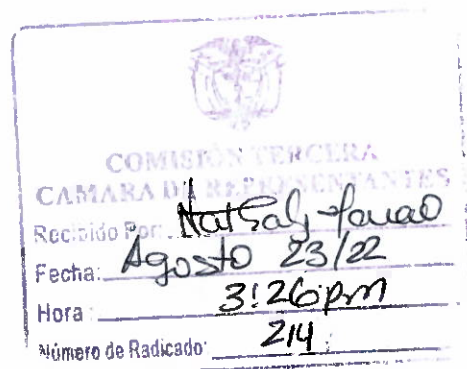 COMISIÓN TERCERA
CAMARA DE REPRESENTANTES
Recibido Por:
Fecha: Agosto 23/22
Hora: 3:26pm
Número de Radicado: 214